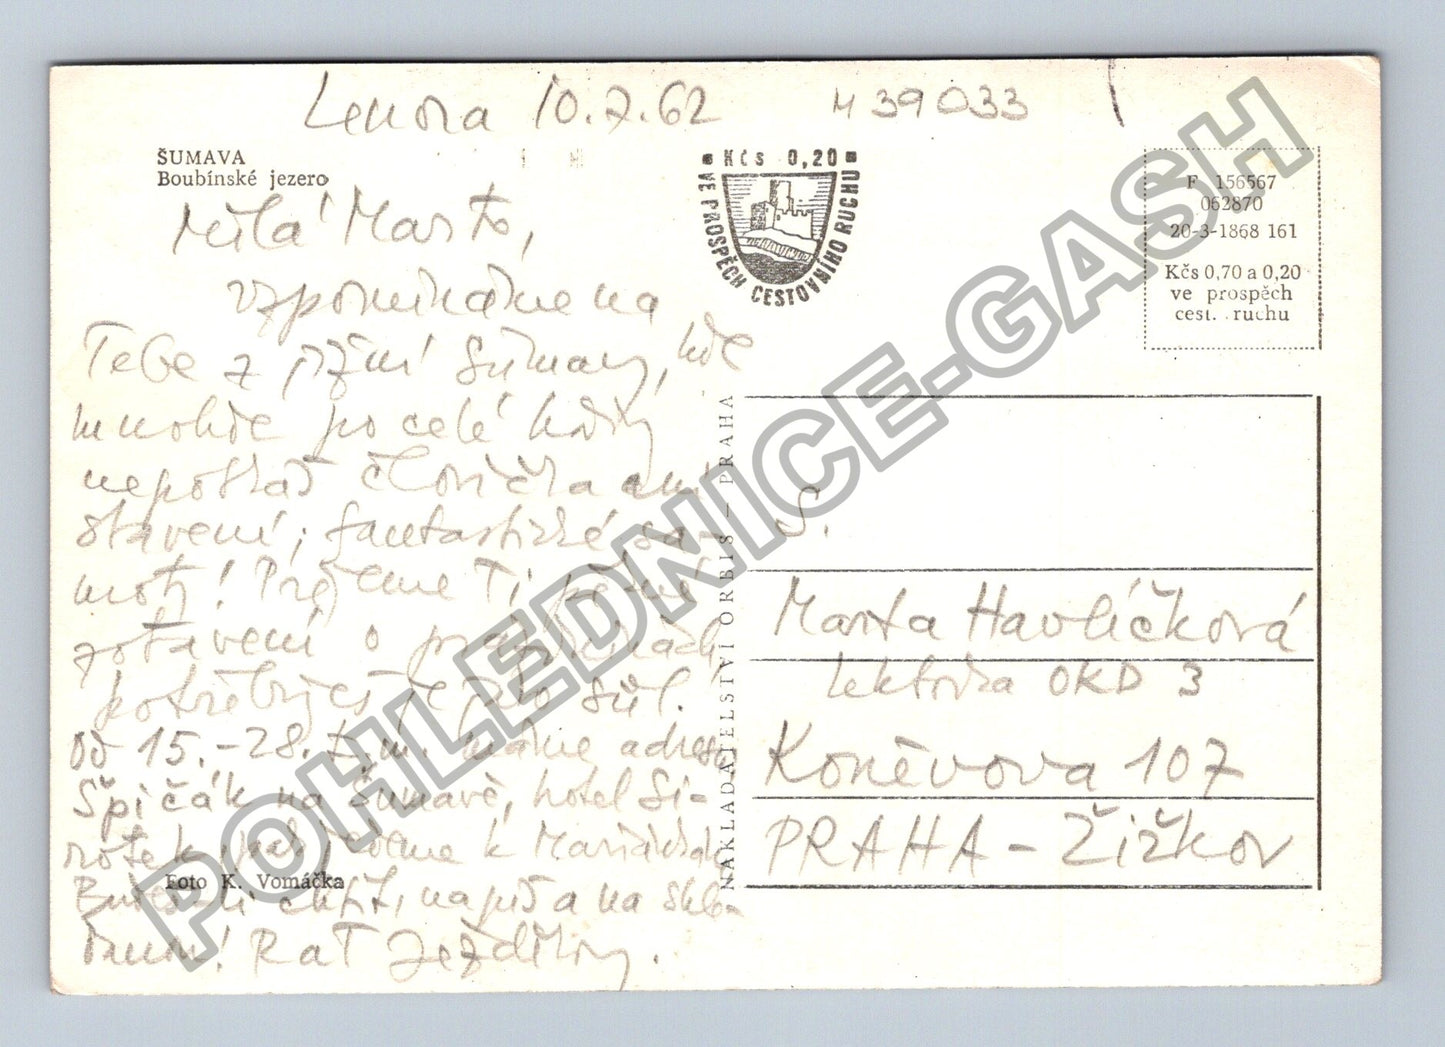 Lenora 10.7.62
H 39033
ŠUMAVA
Boubínské jezero
Kčs 0,20
VE PROSPĚCH CESTOVNÍHO RUCHU
F 156567
062870
20-3-1868 161
Kčs 0,70 a 0,20
ve prospěch
cest. ruchu
Milá Marto,
vzpomínáme na
Tebe z Šumavy, kde
mnohde po celé hodiny
nepotkáš človíčka ani
stavení; fantastické sa-
moty! Přejeme Ti pěkné
zotavení o prázdninách
potřebuješ je jako sůl.
Od 15.-28. t.m. máme adresu
Špičák na Šumavě, hotel Si-
rotek, pak k Mariánské
Budeš-li chtít, napiš a na shle-
danou! Rať Jezdíkovy.
Foto K. Vomáčka
NAKLADATELSTVÍ ORBIS — PRAHA
S.
Marta Havlíčková
lektorka OKD 3
Koněvova 107
PRAHA - Žižkov
POHLEDNICE-GASH